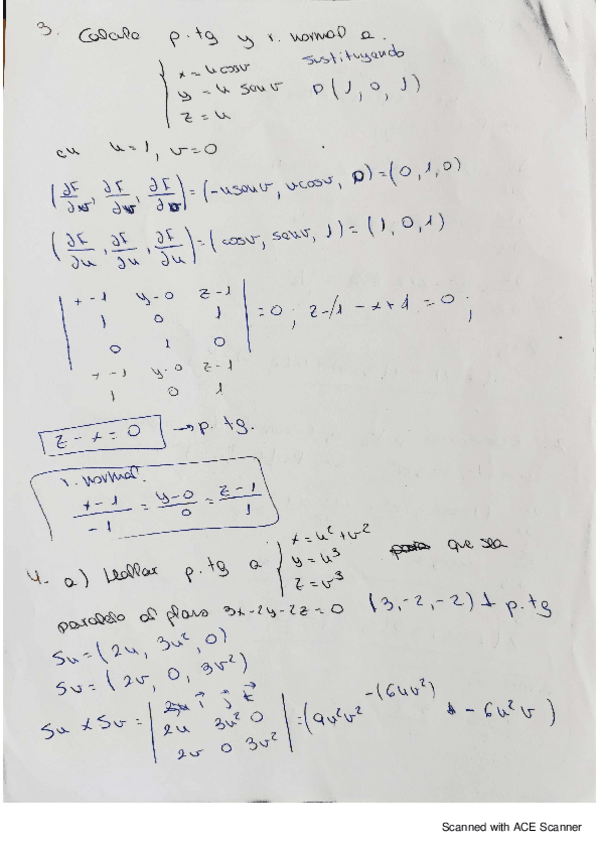 3. Calcula p.tg y r. normal a.
x = u cosv sustituyendo
y = u senv P(1, 0, 1)
z = u
en u=1, v=0
(∂F/∂v, ∂F/∂v, ∂F/∂v) = (-u senv, u cosv, 0) = (0, 1, 0)
(∂F/∂u, ∂F/∂u, ∂F/∂u) = (cosv, senv, 1) = (1, 0, 1)
| x-1 y-0 z-1 |
| 1 0 1 | = 0 ; z-1 -x+1 = 0 ;
| 0 1 0 |
x-1 y-0 z-1
1 0 1
z - x = 0 → p. tg.
r. normal.
(x-1)/(-1) = (y-0)/0 = (z-1)/1
4. a) Hallar p. tg a x = u² + v² que sea
y = u³
z = v³
paralelo al plano 3x-2y-2z = 0 (3, -2, -2) ⊥ p. tg
Su = (2u, 3u², 0)
Sv = (2v, 0, 3v²)
Su × Sv = | i j k |
| 2u 3u² 0 | = (9u²v² -(6uv²) -6u²v)
| 2v 0 3v² |
Scanned with ACE Scanner